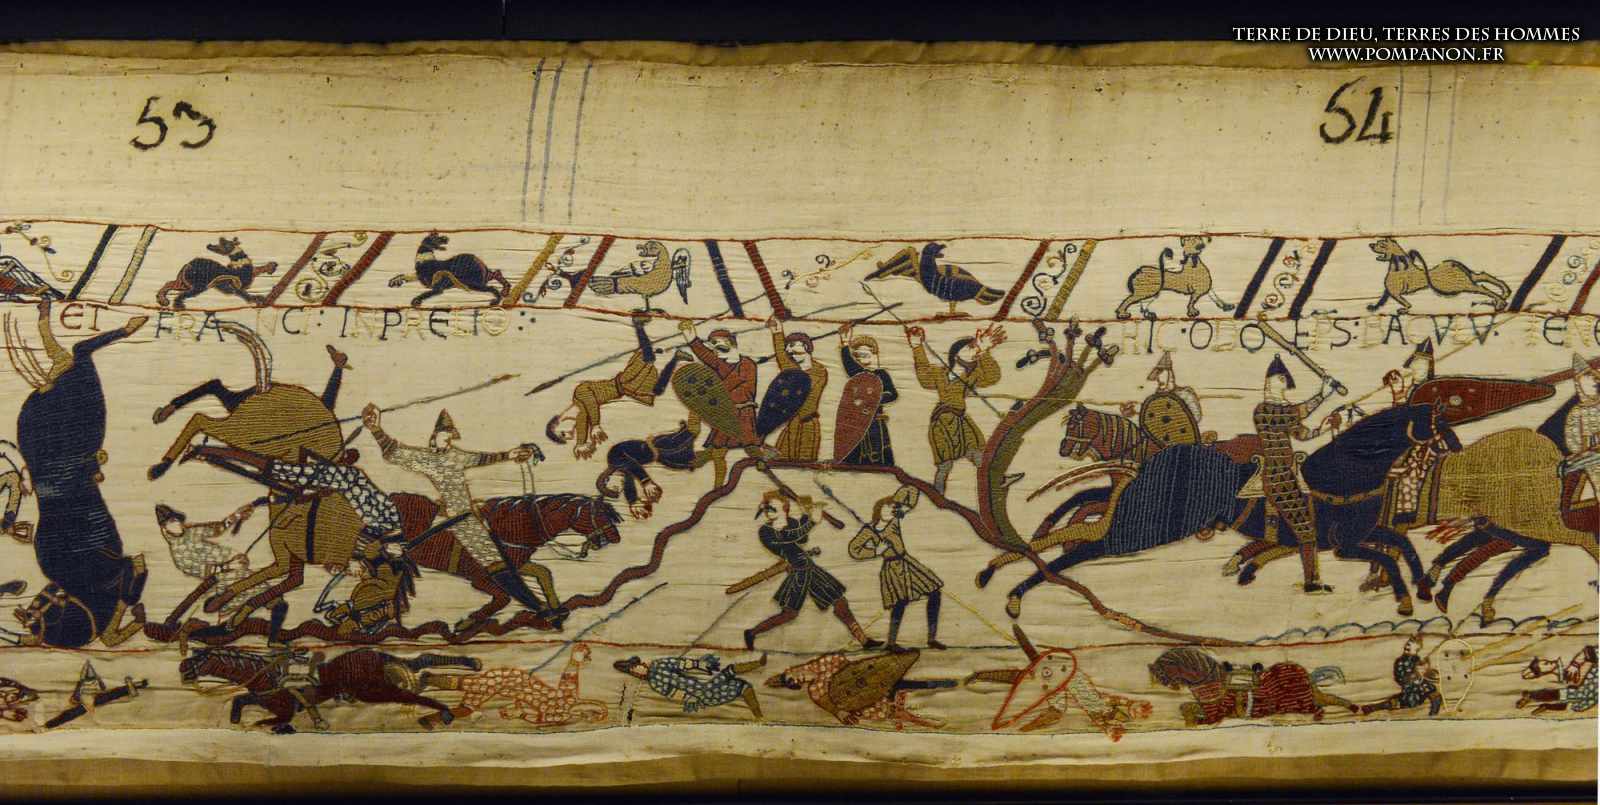 TERRE DE DIEU, TERRES DES HOMMES
WWW.POMPANON.FR
53
54
ET FRANCI: IN PRELIO:
HIC·ODO EPS: